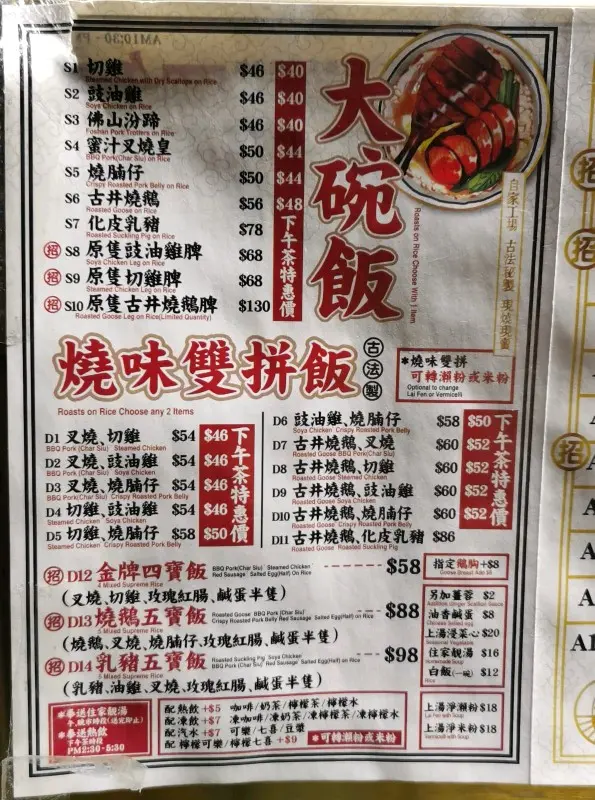 大碗飯
Roasts on Rice Choose With 1 Item
自家工場 古法秘製 現燒現賣
S1 切雞 $46 $40
Steamed Chicken with Dry Scallops on Rice
S2 豉油雞 $46 $40
Soya Chicken on Rice
S3 佛山汾蹄 $46 $40
Foshan Pork Trotters on Rice
S4 蜜汁叉燒皇 $50 $44
BBQ Pork(Char Siu) on Rice
S5 燒腩仔 $50 $44
Crispy Roasted Pork Belly on Rice
S6 古井燒鵝 $56 $48
Roasted Goose on Rice
S7 化皮乳豬 $78
Roasted Suckling Pig on Rice
招 S8 原隻豉油雞脾 $68
Soya Chicken Leg on Rice
招 S9 原隻切雞脾 $68
Steamed Chicken Leg on Rice
招 S10 原隻古井燒鵝脾 $130
Roasted Goose Leg on Rice(Limited Quantity)
下午茶特惠價
燒味雙拼飯
古法製
Roasts on Rice Choose any 2 Items
*燒味雙拼
可轉瀨粉或米粉
Optional to change
Lai Fen or Vermicelli
D1 叉燒、切雞 $54 $46
BBQ Pork (Char Siu) Steamed Chicken
D2 叉燒、豉油雞 $54 $46
BBQ Pork(Char Siu) Soya Chicken
D3 叉燒、燒腩仔 $54 $46
BBQ Pork(Char Siu) Crispy Roasted Pork Belly
D4 切雞、豉油雞 $54 $46
Steamed Chicken Soya Chicken
D5 切雞、燒腩仔 $58 $50
Steamed Chicken Crispy Roasted Pork Belly
下午茶特惠價
D6 豉油雞、燒腩仔 $58 $50
Soya Chicken Crispy Roasted Pork Belly
D7 古井燒鵝、叉燒 $60 $52
Roasted Goose BBQ Pork(Char Siu)
D8 古井燒鵝、切雞 $60 $52
Roasted Goose Steamed Chicken
D9 古井燒鵝、豉油雞 $60 $52
Roasted Goose Soya Chicken
D10 古井燒鵝、燒腩仔 $60 $52
Roasted Goose Crispy Roasted Pork Belly
D11 古井燒鵝、化皮乳豬 $86
Roasted Goose Roasted Suckling Pig
下午茶特惠價
招 D12 金牌四寶飯 $58
4 Mixed Supreme Rice
BBQ Pork(Char Siu) Steamed Chicken
Red Sausage Salted Egg(Half) on Rice
(叉燒、切雞、玫瑰紅腸、鹹蛋半隻)
招 D13 燒鵝五寶飯 $88
5 Mixed Supreme Rice
Roasted Goose BBQ Pork (Char Siu)
Crispy Roasted Pork Belly Red Sausage Salted Egg(Half) on Rice
(燒鵝、叉燒、燒腩仔、玫瑰紅腸、鹹蛋半隻)
招 D14 乳豬五寶飯 $98
5 Mixed Supreme Rice
Roasted Suckling Pig Soya Chicken
BBQ Pork(Char Siu) Red Sausage Salted Egg(Half) on Rice
(乳豬、油雞、叉燒、玫瑰紅腸、鹹蛋半隻)
指定鵝胸+$8
另加薑蓉 $2
油香鹹蛋 $8
上湯浸菜心 $20
住家靚湯 $16
白飯(一碗) $12
Rice
上湯淨瀨粉 $18
Lai Fen with Soup
上湯淨米粉 $18
Vermicelli with Soup
*奉送住家靚湯
午、晚市時段(送完即止)
*奉送熱飲
下午茶時段
PM2:30-5:30
配熱飲+$5 咖啡/奶茶/檸檬茶/檸檬水
配凍飲+$7 凍咖啡/凍奶茶/凍檸檬茶/凍檸檬水
配汽水+$7 可樂/七喜/豆漿
配 檸檬可樂/檸檬七喜+$9 *可轉瀨粉或米粉
招
招
招